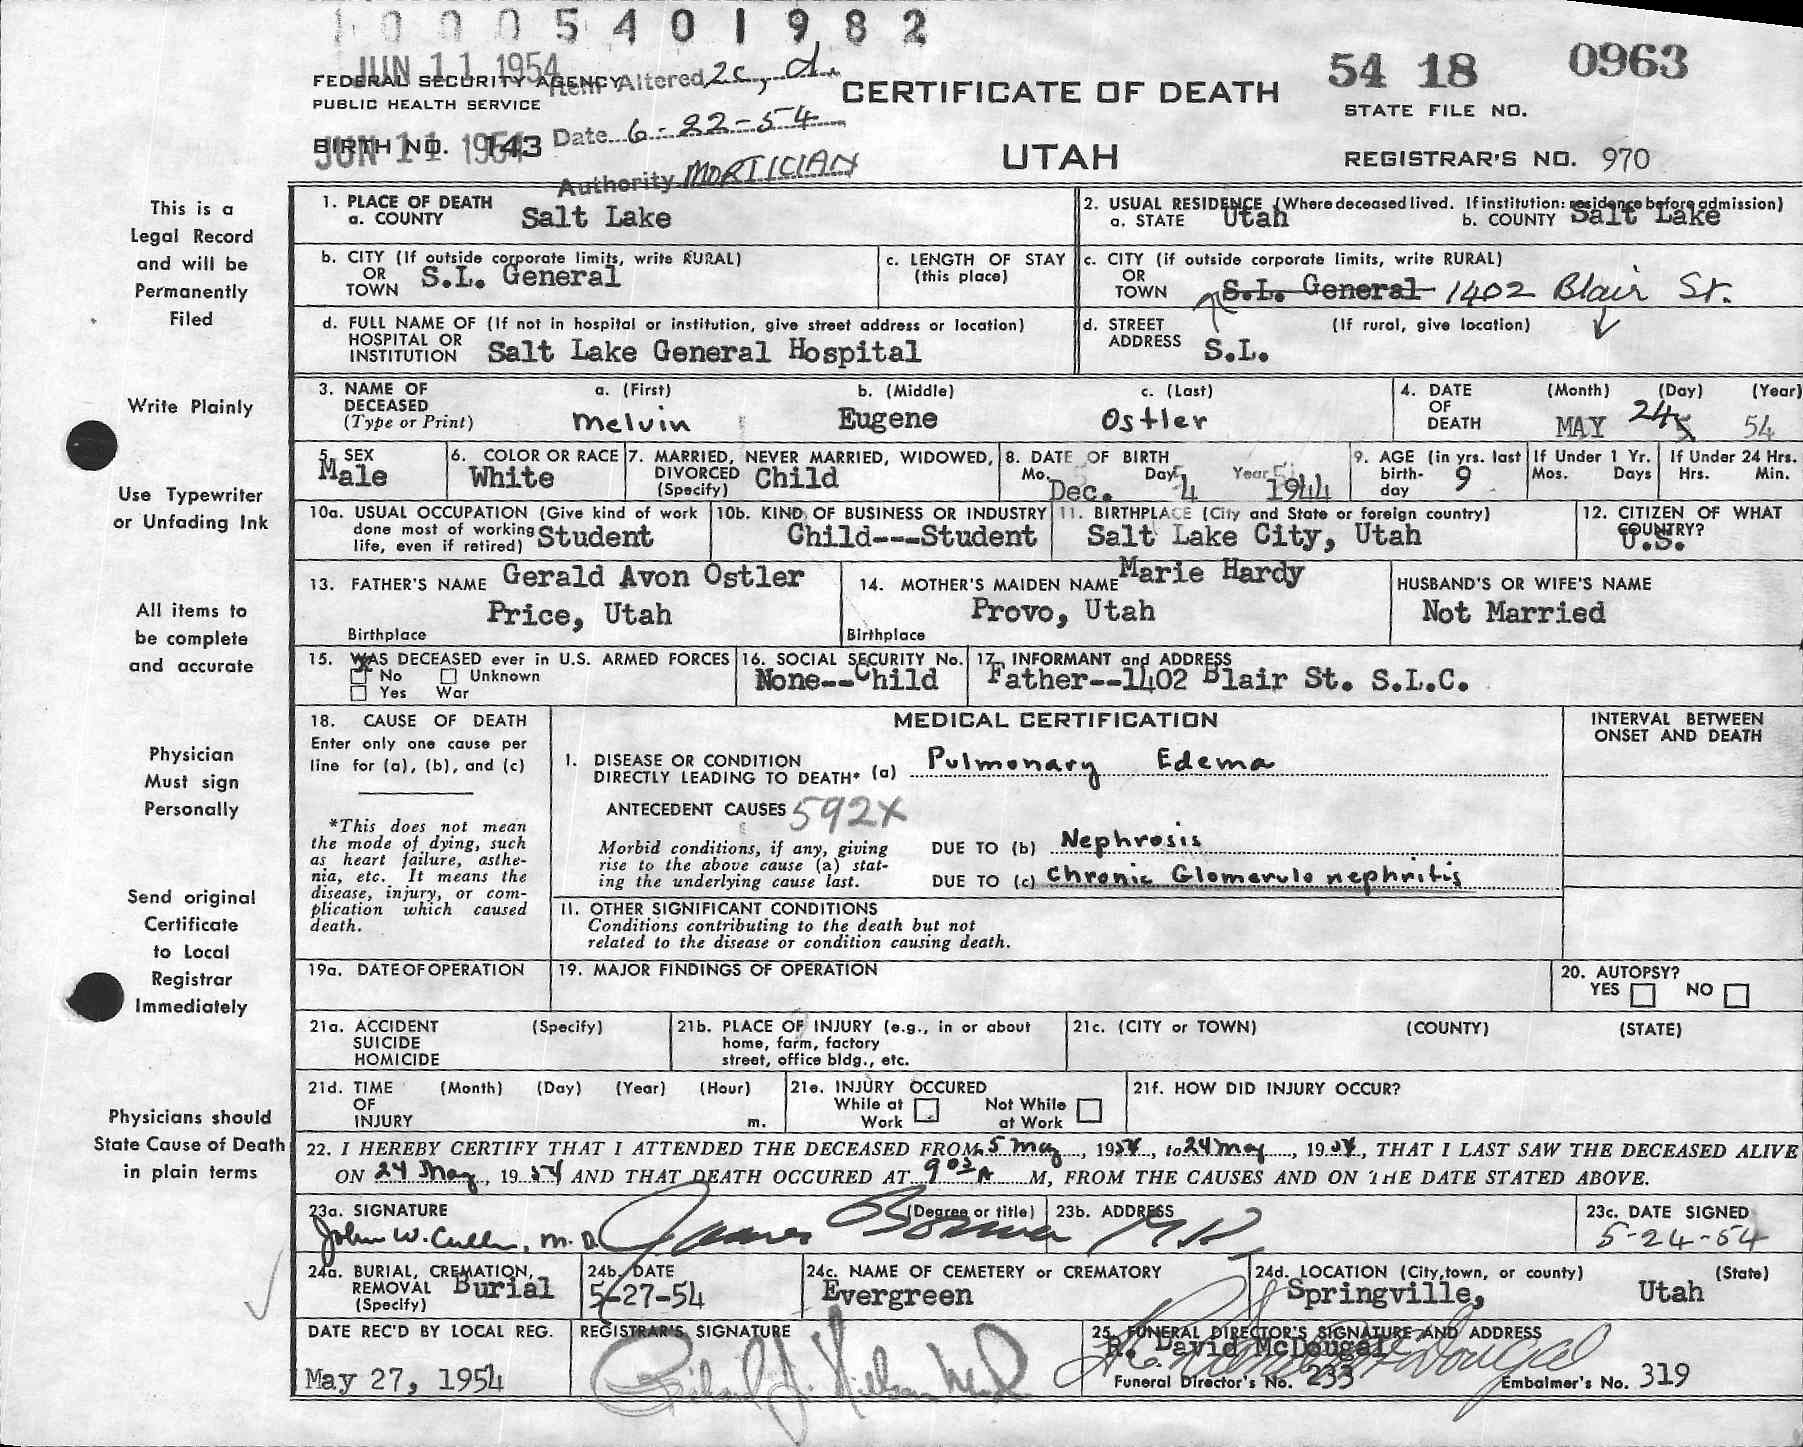 1 0 0 0 5 4 0 1 9 8 2
JUN 11 1954
FEDERAL SECURITY AGENCY
Item Altered 2c, d.
PUBLIC HEALTH SERVICE
Date 6-22-54
BIRTH NO. 143
JUN 11 1954
Authority MORTICIAN
CERTIFICATE OF DEATH
UTAH
54 18 0963
STATE FILE NO.
REGISTRAR'S NO. 970
This is a
Legal Record
and will be
Permanently
Filed
Write Plainly
Use Typewriter
or Unfading Ink
All items to
be complete
and accurate
Physician
Must sign
Personally
Send original
Certificate
to Local
Registrar
Immediately
Physicians should
State Cause of Death
in plain terms
1. PLACE OF DEATH
a. COUNTY Salt Lake
2. USUAL RESIDENCE (Where deceased lived. If institution: residence before admission)
a. STATE Utah b. COUNTY Salt Lake
b. CITY (If outside corporate limits, write RURAL)
OR
TOWN S.L. General
c. LENGTH OF STAY
(this place)
c. CITY (if outside corporate limits, write RURAL)
OR
TOWN S.L. General 1402 Blair St.
d. FULL NAME OF (If not in hospital or institution, give street address or location)
HOSPITAL OR
INSTITUTION Salt Lake General Hospital
d. STREET (If rural, give location)
ADDRESS S.L.
3. NAME OF a. (First) b. (Middle) c. (Last)
DECEASED
(Type or Print) Melvin Eugene Ostler
4. DATE (Month) (Day) (Year)
OF
DEATH MAY 24 54
5. SEX
Male
6. COLOR OR RACE
White
7. MARRIED, NEVER MARRIED, WIDOWED,
DIVORCED Child
(Specify)
8. DATE OF BIRTH
Mo. Day Year
Dec. 4 1944
9. AGE (in yrs. last
birth- 9
day
If Under 1 Yr.
Mos. Days
If Under 24 Hrs.
Hrs. Min.
10a. USUAL OCCUPATION (Give kind of work
done most of working
life, even if retired) Student
10b. KIND OF BUSINESS OR INDUSTRY
Child---Student
11. BIRTHPLACE (City and State or foreign country)
Salt Lake City, Utah
12. CITIZEN OF WHAT
COUNTRY?
U.S.
13. FATHER'S NAME Gerald Avon Ostler
Price, Utah
Birthplace
14. MOTHER'S MAIDEN NAME Marie Hardy
Provo, Utah
Birthplace
HUSBAND'S OR WIFE'S NAME
Not Married
15. WAS DECEASED ever in U.S. ARMED FORCES
No Unknown
Yes War
16. SOCIAL SECURITY No.
None--Child
17. INFORMANT and ADDRESS
Father--1402 Blair St. S.L.C.
18. CAUSE OF DEATH
Enter only one cause per
line for (a), (b), and (c)
*This does not mean
the mode of dying, such
as heart failure, asthe-
nia, etc. It means the
disease, injury, or com-
plication which caused
death.
MEDICAL CERTIFICATION
I. DISEASE OR CONDITION
DIRECTLY LEADING TO DEATH* (a) Pulmonary Edema
ANTECEDENT CAUSES 592X
Morbid conditions, if any, giving
rise to the above cause (a) stat-
ing the underlying cause last.
DUE TO (b) Nephrosis
DUE TO (c) Chronic Glomerulo nephritis
II. OTHER SIGNIFICANT CONDITIONS
Conditions contributing to the death but not
related to the disease or condition causing death.
INTERVAL BETWEEN
ONSET AND DEATH
19a. DATE OF OPERATION
19. MAJOR FINDINGS OF OPERATION
20. AUTOPSY?
YES NO
21a. ACCIDENT (Specify)
SUICIDE
HOMICIDE
21b. PLACE OF INJURY (e.g., in or about
home, farm, factory
street, office bldg., etc.
21c. (CITY or TOWN) (COUNTY) (STATE)
21d. TIME (Month) (Day) (Year) (Hour)
OF
INJURY m.
21e. INJURY OCCURED
While at Not While
Work at Work
21f. HOW DID INJURY OCCUR?
22. I HEREBY CERTIFY THAT I ATTENDED THE DECEASED FROM 5 May, 1954, to 24 May, 1954, THAT I LAST SAW THE DECEASED ALIVE
ON 24 May, 1954 AND THAT DEATH OCCURED AT 9 03 A M, FROM THE CAUSES AND ON THE DATE STATED ABOVE.
23a. SIGNATURE (Degree or title)
John W. Cullen, M.D. James M.D.
23b. ADDRESS
23c. DATE SIGNED
5-24-54
24a. BURIAL, CREMATION,
REMOVAL Burial
(Specify)
24b. DATE
5-27-54
24c. NAME OF CEMETERY or CREMATORY
Evergreen
24d. LOCATION (City, town, or county) (State)
Springville, Utah
DATE REC'D BY LOCAL REG.
May 27, 1954
REGISTRAR'S SIGNATURE
25. FUNERAL DIRECTOR'S SIGNATURE AND ADDRESS
R. David McDougal
Funeral Director's No. 233 Embalmer's No. 319